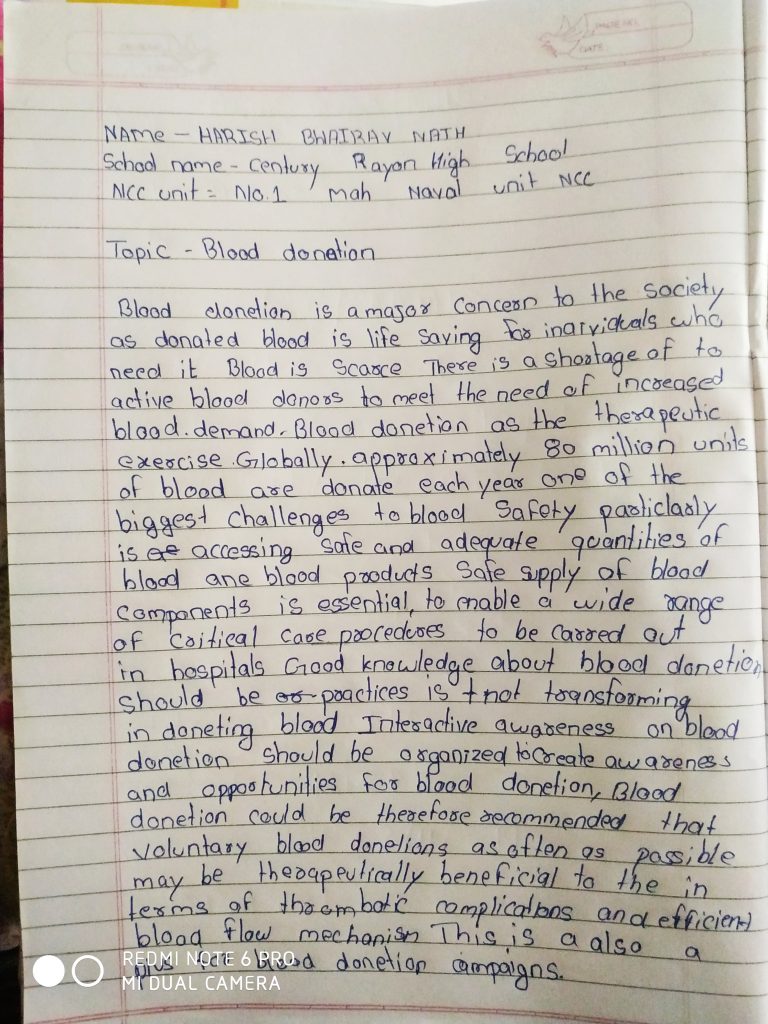 NAME - HARISH BHAIRAV NATH
School name - Century Rayon High School
NCC unit = No.1 Mah Naval unit NCC
Topic - Blood donation
Blood donetion is a major concern to the society
as donated blood is life saving for individuals who
need it Blood is scarce There is a shortage of to
active blood donors to meet the need of increased
blood.demand. Blood donetion as the therapeutic
exercise.Globally.approximately 80 million units
of blood are donate each year one of the
biggest challenges to blood safety particlarly
is accessing safe and adequate quantities of
blood ane blood products Safe supply of blood
components is essential, to enable a wide range
of critical care procedures to be carred out
in hospitals Good knowledge about blood donetion
should be practices is not transforming
in doneting blood Interactive awareness on blood
donetion should be organized to create awareness
and opportunities for blood donetion, Blood
donetion could be therefore recommended that
voluntary blood donetions as often as possible
may be therapeutically beneficial to the in
terms of thrombotic complications and efficient
blood flow mechanism This is a also a
plus for blood donetion campaigns.
REDMI NOTE 6 PRO
MI DUAL CAMERA